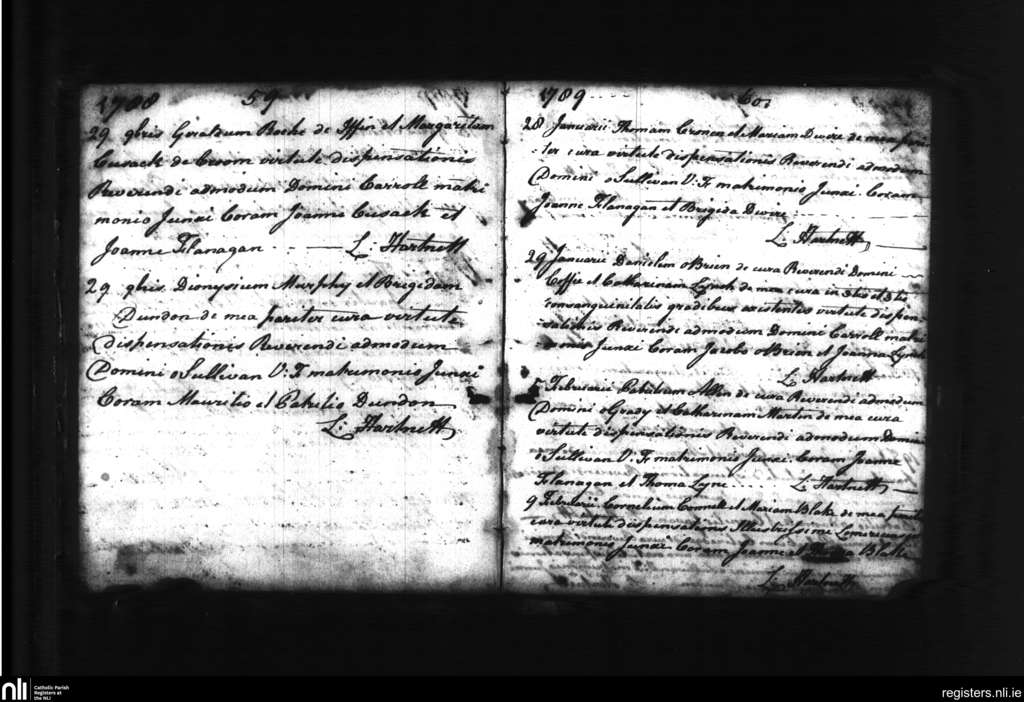 1788 59
29 9bris Giraldum Roche de Iffin et Margaretam
Cusack de Croom virtute dispensationis
Reverendi admodum Domini Carroll matri
monio Junxi Coram Joanne Cusack et
Joanne Flanagan L: Hartnett
29 9bris Dionysium Murphy et Brigidam
Dundon de mea pariter cura virtute
dispensationis Reverendi admodum
Domini oSullivan V: F: matrimonio Junxi
Coram Mauritio et Dundon
L: Hartnett
1789 60
28 Januarii Thomam Cronen et Mariam Dwire de mea pari
ter cura virtute dispensationis Reverendi admodum
Domini oSullivan V: F: matrimonio Junxi Coram
Joanne Flanagan et Brigida Dwire
L: Hartnett
29 Januarii Danielem oBrien de cura Reverendi Domini
Coffee et Catharinam Lynch de mea cura in 3tio et 3tio
consanguinitatis gradibus existentes virtute dispen
sationis Reverendi admodum Domini Carroll matri
monio Junxi Coram Jacobo oBrien et Joanna Lynch
L: Hartnett
5 Februarii de cura Reverendi admodum
Domini oGrady et Catharinam Martin de mea cura
virtute dispensationis Reverendi admodum Domini
oSullivan V: F: matrimonio Junxi Coram Joanne
Flanagan et Thoma Lyne L: Hartnett
9 Februarii Cornelium Connell et Mariam Blake de mea
cura virtute dispensationis Illustrissimi
matrimonio Junxi Coram Joanne et Blake
L: Hartnett
nli Catholic Parish
Registers at
the NLI
registers.nli.ie